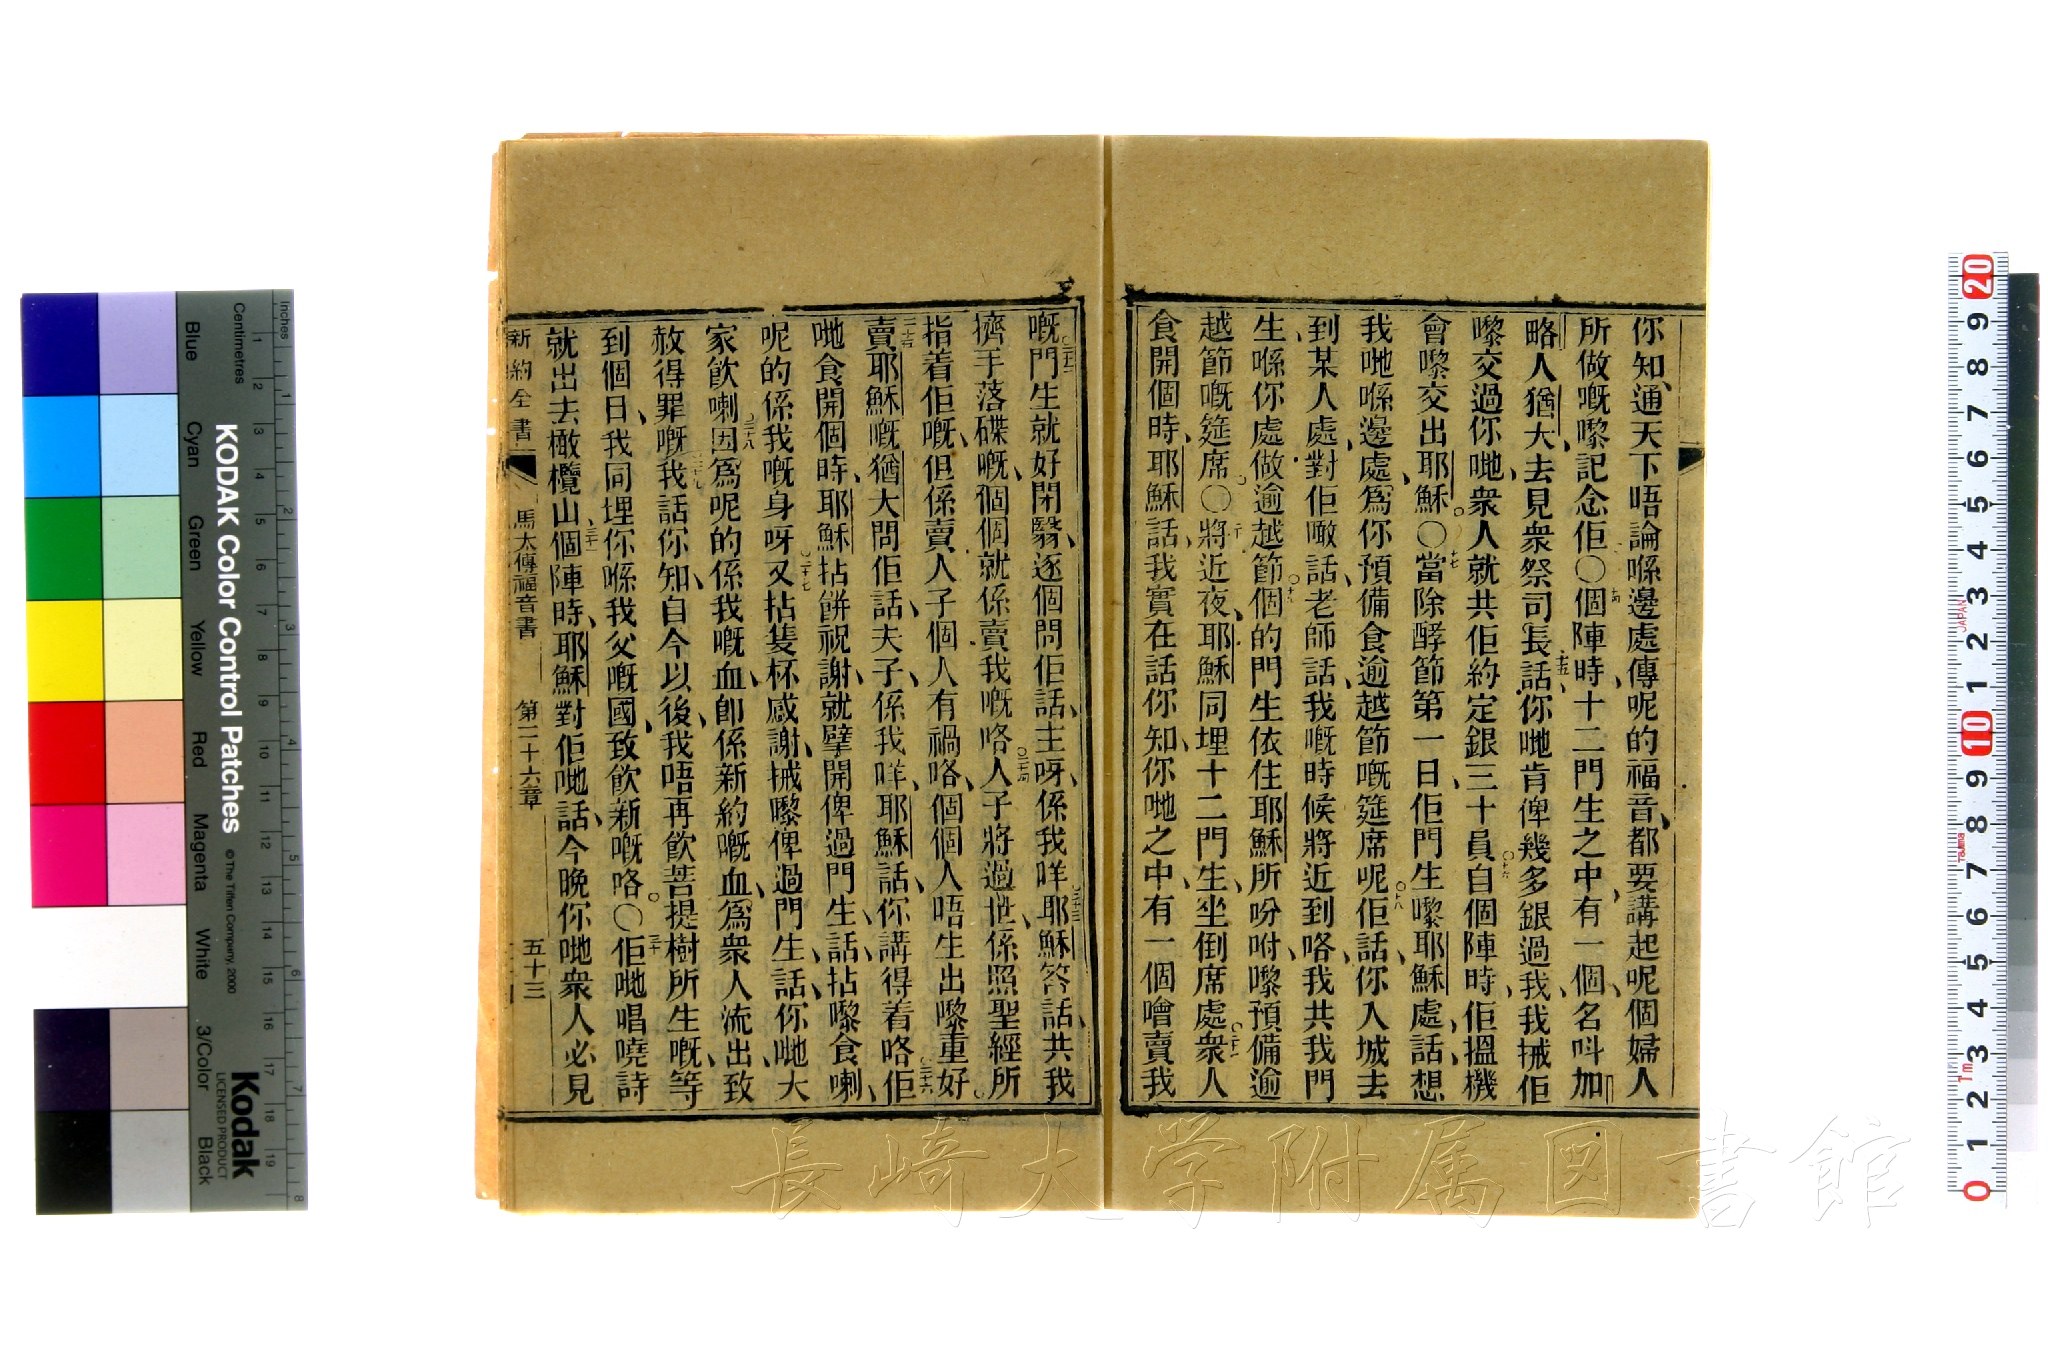 你知、通天下唔論喺邊處傳呢的福音、都要講起呢個婦人
所做嘅嚟記念佢○十四個陣時十二門生之中、有一個名叫加
略人猶大、去見衆祭司長、十五話、你哋肯俾幾多銀過我、我搣佢
嚟交過你哋、衆人就共佢約定銀三十員○十六自個陣時、佢搵機
會嚟交出耶穌。○十七當除酵節第一日、佢門生嚟耶穌處、話、想
我哋喺邊處、爲你預備食逾越節嘅筵席呢○十八佢話、你入城去
到某人處、對佢噉話、老師話、我嘅時候將近到咯、我共我門
生、喺你處做逾越節○十九個的門生依住耶穌所吩咐、嚟預備逾
越節嘅筵席。○二十將近夜、耶穌同埋十二門生、坐倒席處○二十一衆人
食開個時、耶穌話、我實在話你知、你哋之中、有一個噲賣我
嘅○二十二門生就好閉翳、逐個問佢話、主呀、係我咩○二十三耶穌答話、共我
擠手落碟嘅、個個就係賣我嘅咯○二十四人子將過世、係照聖經所
指着佢嘅、但係賣人子個人有禍咯、個個人唔生出嚟重好。
二十五賣耶穌嘅猶大問佢話、夫子係我咩、耶穌話、你講得着咯○二十六佢
哋食開個時、耶穌拈餅祝謝、就擘開俾過門生、話、拈嚟食喇、
呢的係我嘅身呀○二十七又拈隻杯感謝、搣嚟俾過門生、話、你哋大
家飲喇○二十八因爲呢的係我嘅血、卽係新約嘅血、爲衆人流出、致
赦得罪嘅○二十九我話你知、自今以後、我唔再飲菩提樹所生嘅、等
到個日、我同埋你喺我父嘅國、致飲新嘅咯。○三十佢哋唱嘵詩
就出去橄欖山、三十一個陣時、耶穌對佢哋話、今晚你哋衆人必見
新約全書 馬太傳福音書 第二十六章 五十三
Inches
Centimetres
KODAK Color Control Patches
© The Tiffen Company, 2000
Kodak
LICENSED PRODUCT
Blue
Cyan
Green
Yellow
Red
Magenta
White
3/Color
Black
長崎大学附属図書館